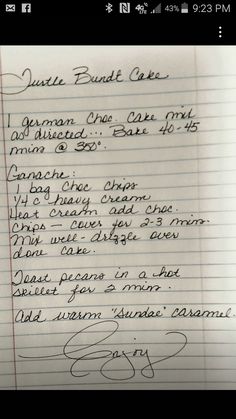 43% 9:23 PM
Turtle Bundt Cake
1 german choc. cake mix
as directed... Bake 40-45
mins @ 350°.
Ganache:
1 bag choc chips
1/4 c heavy cream
Heat cream add choc.
chips - cover for 2-3 mins.
Mix well - drizzle over
done cake.
Toast pecans in a hot
skillet for 2 mins.
Add warm "Sundae" caramel.
Enjoy